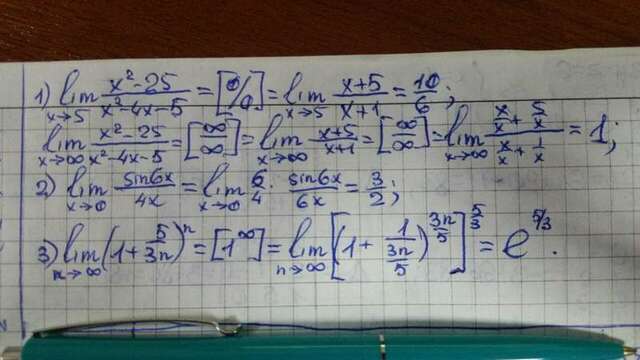 1) lim x→5 (x²-25)/(x²-4x-5) = [0/0] = lim x→5 (x+5)/(x+1) = 10/6;
lim x→∞ (x²-25)/(x²-4x-5) = [∞/∞] = lim x→∞ (x+5)/(x+1) = [∞/∞] = lim x→∞ (x/x + 5/x)/(x/x + 1/x) = 1;
2) lim x→0 sin6x/4x = lim x→0 6/4 · sin6x/6x = 3/2;
3) lim n→∞ (1 + 5/3n)ⁿ = [1^∞] = lim n→∞ [(1 + 1/(3n/5))^(3n/5)]^(5/3) = e^(5/3).